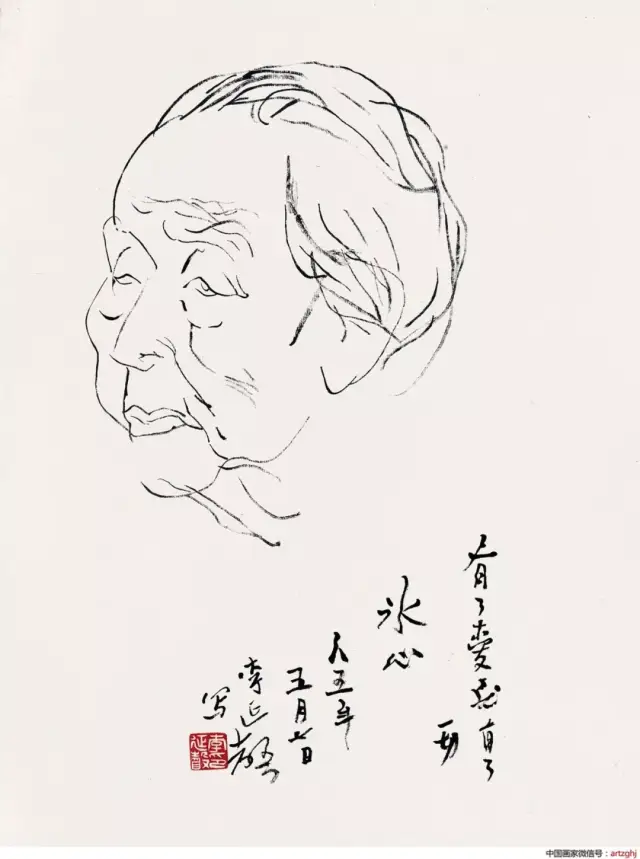 有了愛就有了
一切
冰心
八五年
五月七日
李延聲
写
中国画家微信号：artzghj